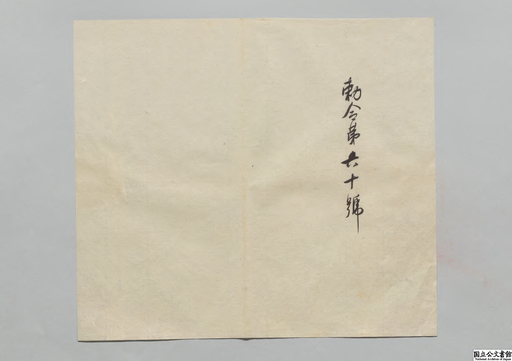 勅令第六十號
国立公文書館
National Archives of Japan